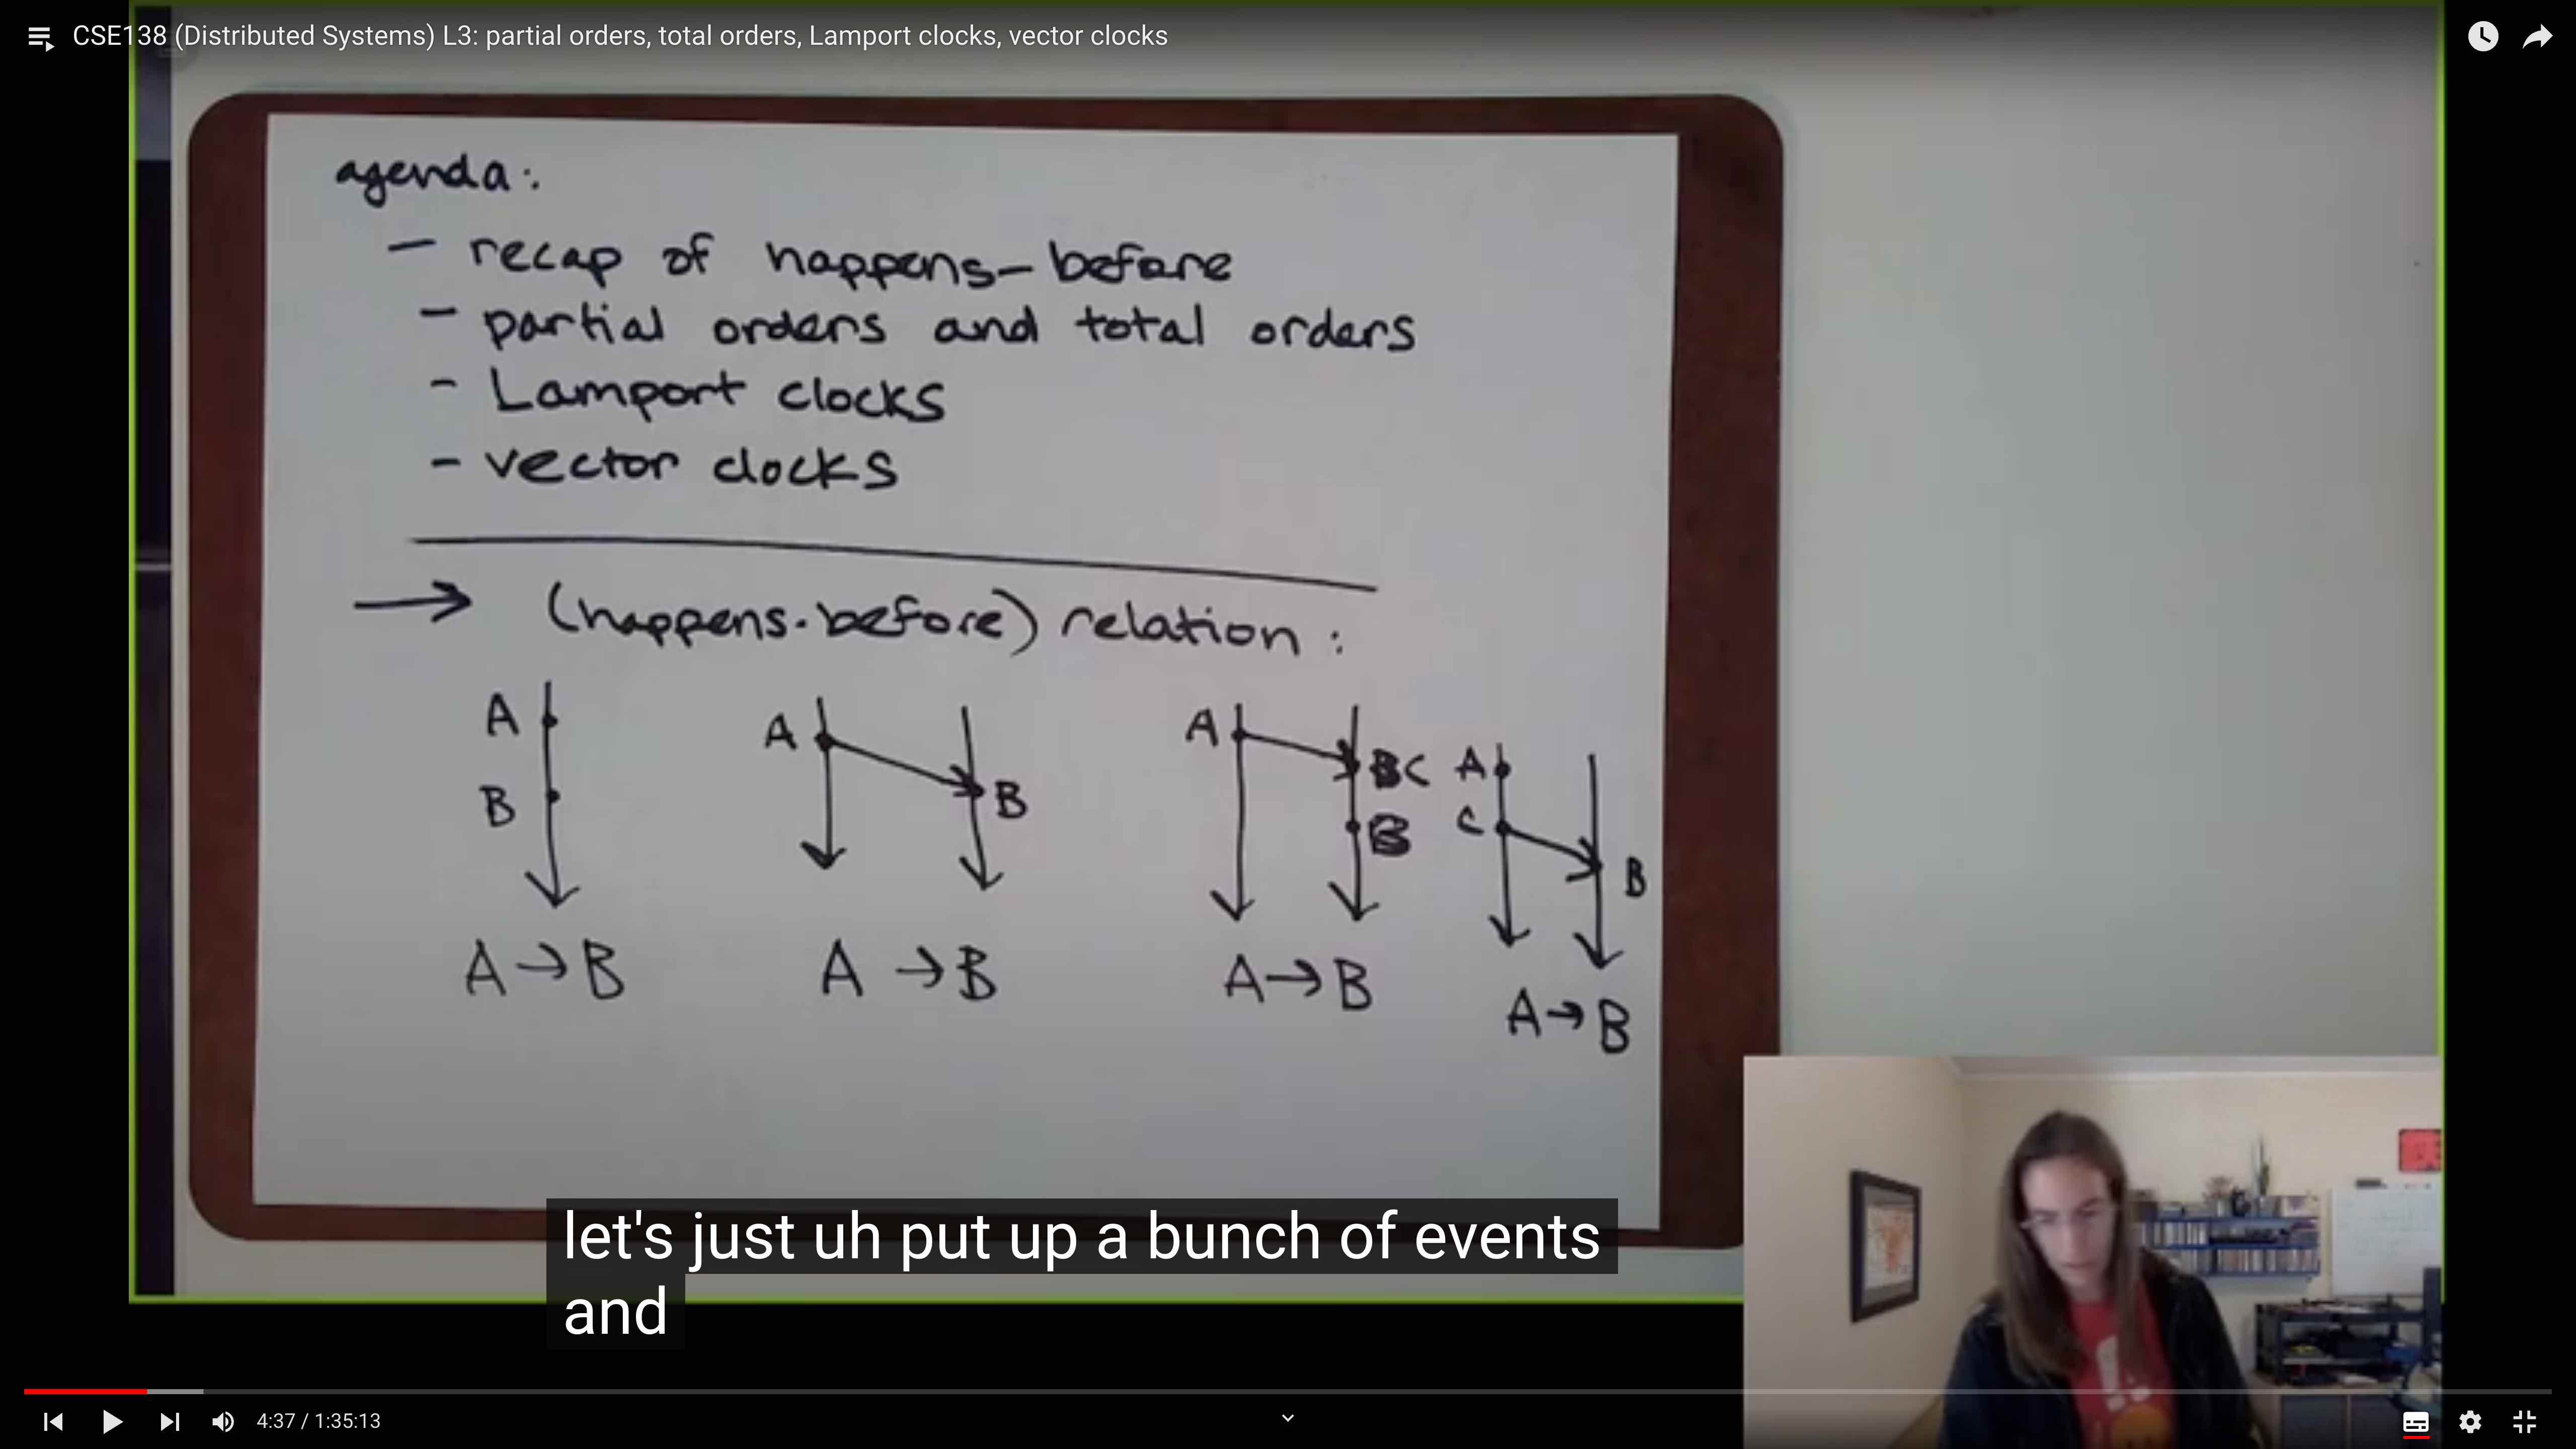 CSE138 (Distributed Systems) L3: partial orders, total orders, Lamport clocks, vector clocks
agenda:
- recap of happens-before
- partial orders and total orders
- Lamport clocks
- vector clocks
→ (happens-before) relation:
A
B
A → B
A
B
A → B
A
C
B
A → B
A
C
B
A → B
let's just uh put up a bunch of events
and
4:37 / 1:35:13